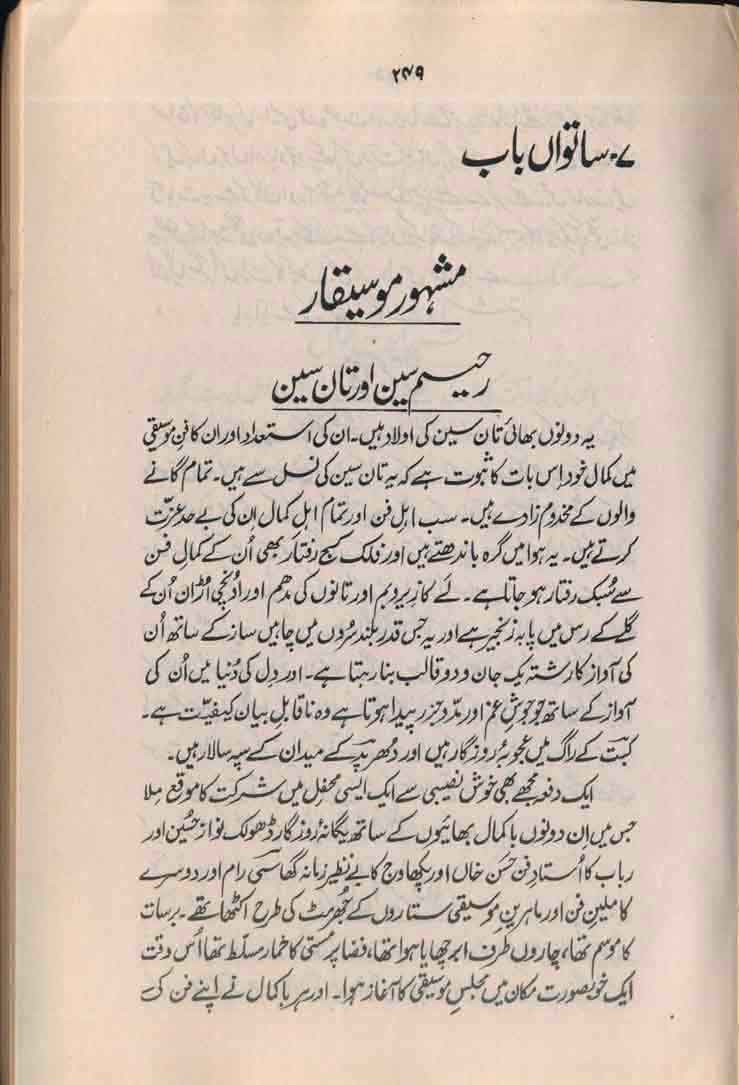 ۲۴۹
۷۔ ساتواں باب
مشہور موسیقار
رحیم سین اور تان سین
یہ دونوں بھائی تان سین کی اولاد ہیں۔ ان کی استعداد اور ان کا فنِ موسیقی
میں کمال خود اِس بات کا ثبوت ہے کہ یہ تان سین کی نسل سے ہیں۔ تمام گانے
والوں کے مخدوم زادے ہیں۔ سب اہلِ فن اور تمام اہلِ کمال اِن کی بے حد عزّت
کرتے ہیں۔ یہ ہوا میں گرہ باندھتے ہیں اور فلک کج رفتار بھی اُن کے کمالِ فن
سے سُبک رفتار ہو جاتا ہے۔ لَے کا زیر و بم اور تانوں کی مدھم اور اونچی اڑان اُن کے
گلے کے رس میں پا بہ زنجیر ہے اور یہ جس قدر بلند سُروں میں چاہیں ساز کے ساتھ اُن
کی آواز کا رشتہ یک جان و دو قالب بنا رہتا ہے۔ اور دِل کی دُنیا میں اُن کی
آواز کے ساتھ جو جوشِ غم اور مدّ و جزر پیدا ہوتا ہے وہ ناقابلِ بیان کیفیّت ہے۔
کبت کے راگ میں عجوبۂ روزگار ہیں اور دُھرپد کے میدان کے سپہ سالار ہیں۔
ایک دفعہ مجھے بھی خوش نصیبی سے ایک ایسی محفل میں شرکت کا موقع مِلا
جس میں اِن دونوں با کمال بھائیوں کے ساتھ یگانۂ روزگار ڈھولک نواز حُسین اور
رباب کا اُستادِ فن حَسن خاں اور پکھاوج کا بے نظیرِ زمانہ گھاسی رام اور دوسرے
کاملینِ فن اور ماہرینِ موسیقی ستاروں کے جُھرمٹ کی طرح اکٹھا تھے۔ برسات
کا موسم تھا، چاروں طرف ابر چھایا ہوا تھا، فضا پر مستی کا خمار مسلّط تھا اُس وقت
ایک خوبصورت مکان میں مجلسِ موسیقی کا آغاز ہوا۔ اور ہر با کمال نے اپنے فن کی